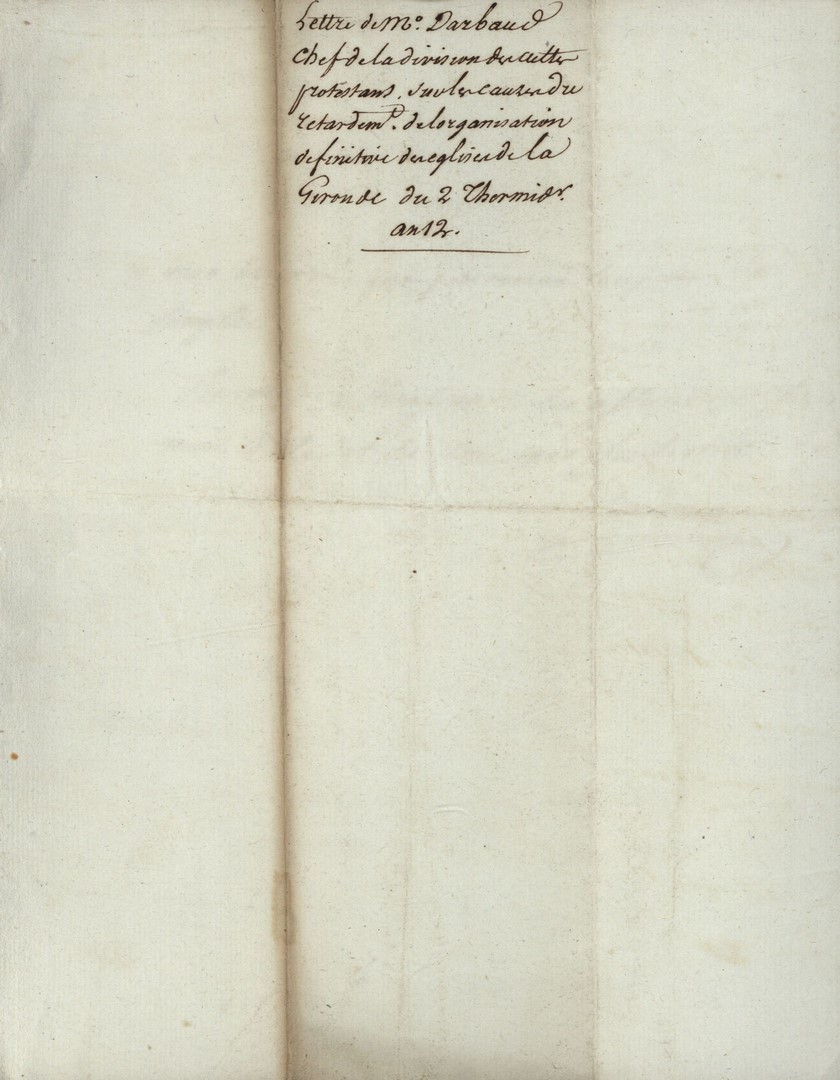 Lettre de Mo. Darbaud
Chef de la division des cultes
protestans, sur les causes du
retardemt. de l'organisation
definitive des eglises de la
Gironde du 2 Thermidr.
an 12.